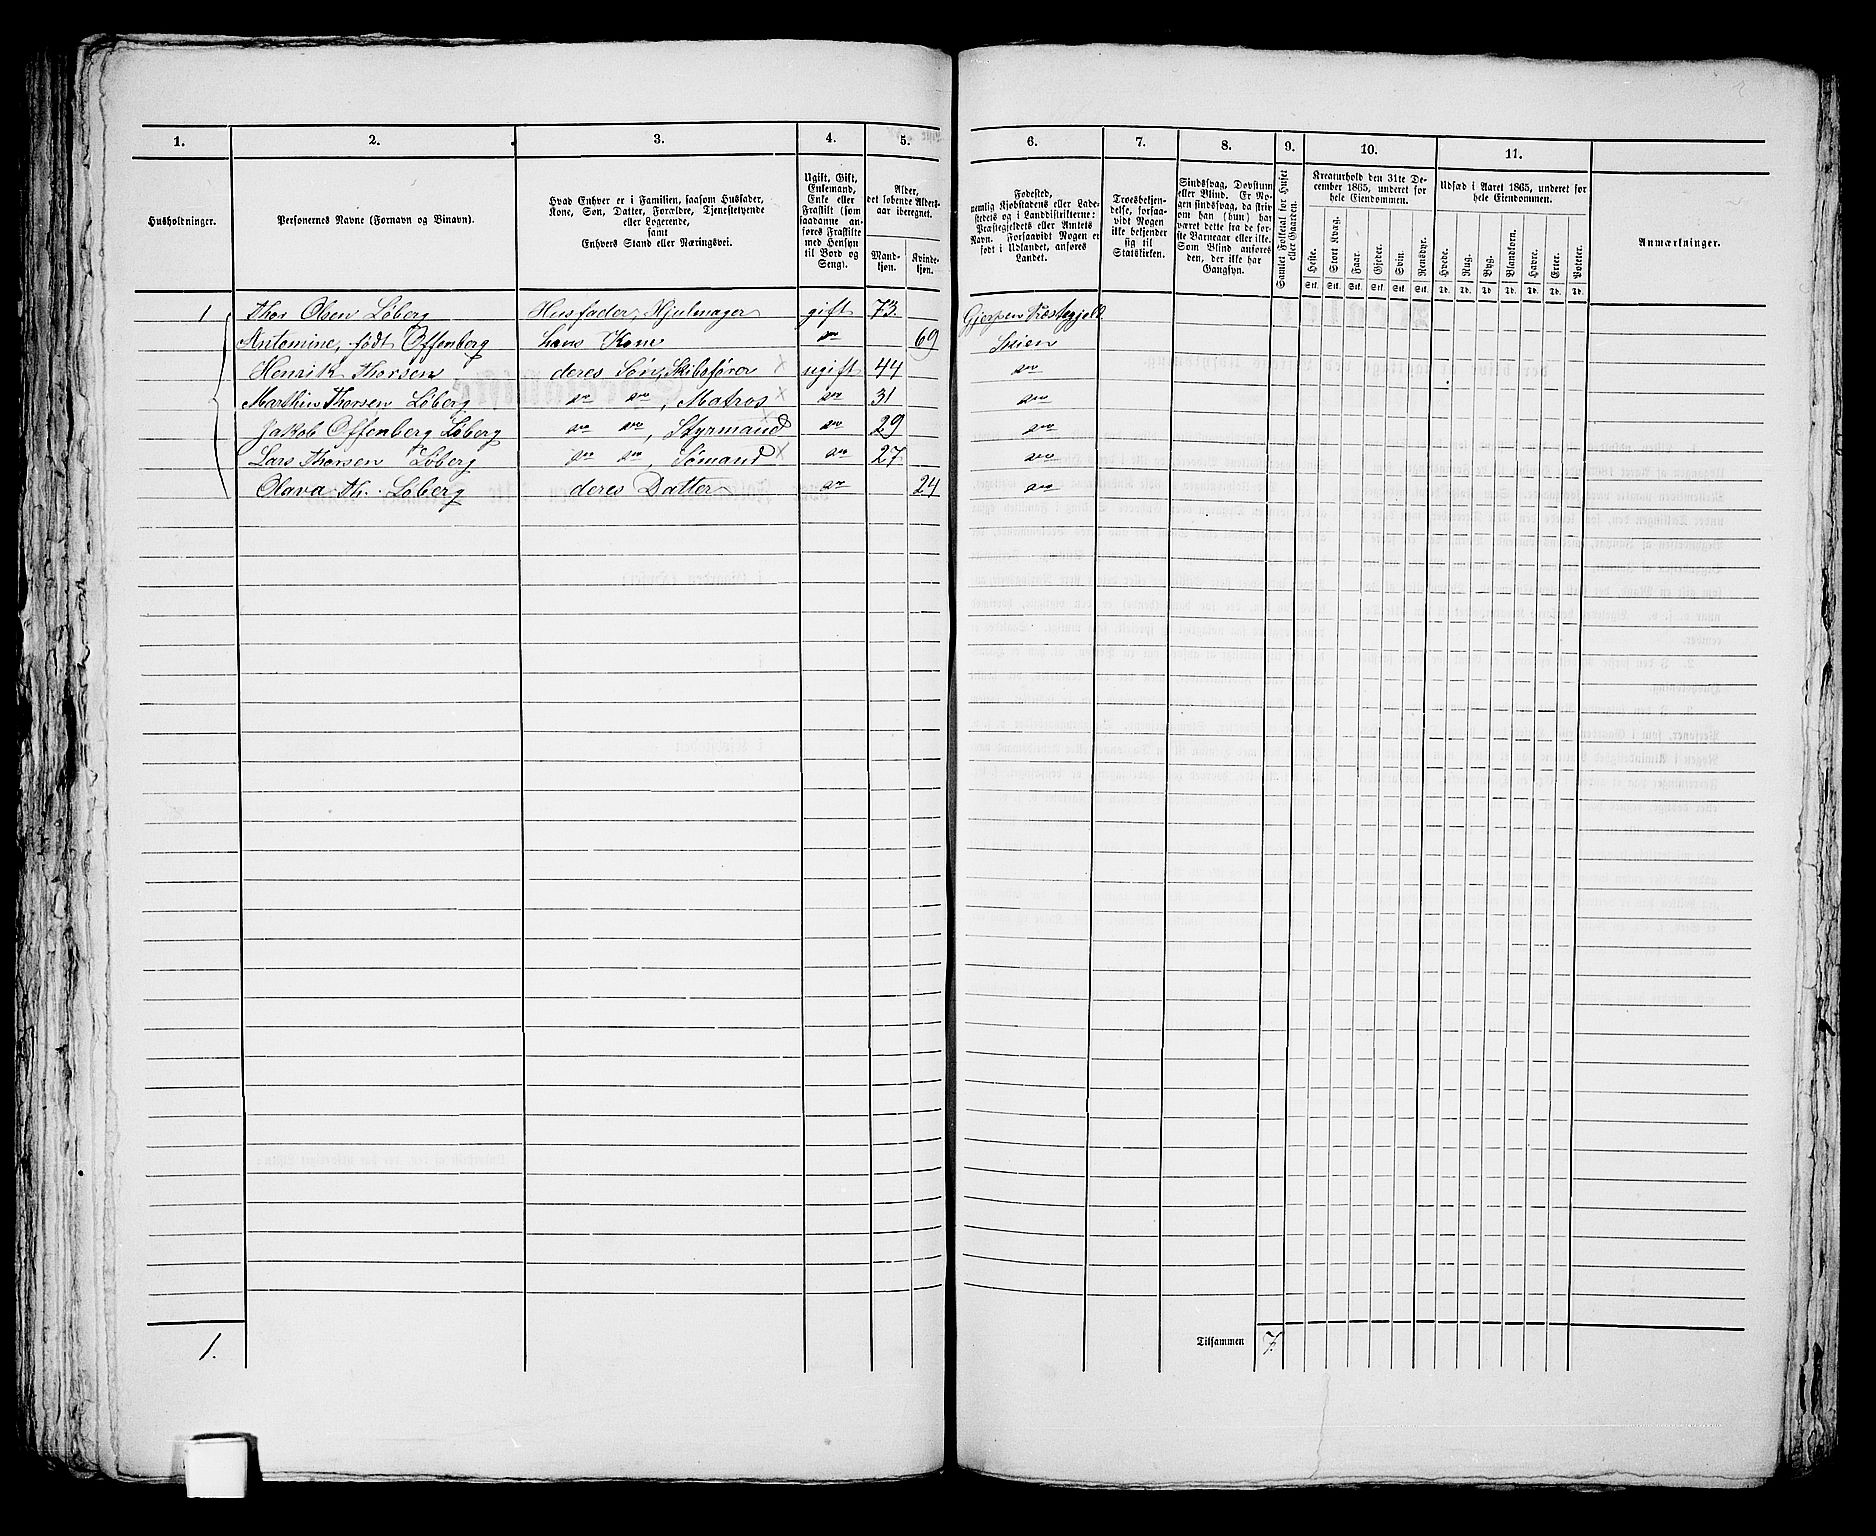 1. 2. 3. 4. 5. 6. 7. 8. 9. 10. 11.
Husholdninger.
Personernes Navne (Fornavn og Binavn).
Hvad Enhver er i Familien, saasom Husfader,
Kone, Søn, Datter, Forældre, Tjenestetyende
eller Logerende,
samt
Enhvers Stand eller Næringsvei.
Ugift, Gift,
Enkemand,
Enke eller
Fraskilt (som
saadanne an-
føres Fraskilte
med Hensyn
til Bord og
Seng).
Alder,
det løbende Alders-
aar iberegnet.
Mand-
kjøn.
Kvinde-
kjøn.
Fødested,
nemlig Kjøbstadens eller Lade-
stedets og i Landdistrikterne:
Præstegjeldets eller Amtets
Navn. Forsaavidt Nogen er
født i Udlandet, anføres
Landet.
Troesbekjen-
delse, forsaa-
vidt Nogen
ikke bekjender
sig til
Statskirken.
Sindssvag, Døvstum
eller Blind. Er No-
gen sindssvag, da skriv
om han (hun) har
været dette fra de før-
ste Barneaar eller ikke.
Som Blind anføres
den, der ikke har
Gangsyn.
Samlet Folketal for Huset
eller Gaarden.
Kreaturhold den 31te De-
cember 1865, underet for
hele Eiendommen.
Heste. Stort Kvæg. Faar. Gjeder. Svin. Rensdyr.
Stk. Stk. Stk. Stk. Stk. Stk.
Udsæd i Aaret 1865, underet for
hele Eiendommen.
Hvede. Rug. Byg. Blandkorn. Havre. Erter. Poteter.
Td. Td. Td. Td. Td. Td. Td.
Anmærkninger.
1 Thor Olsen Løberg Husfader, Hjulmager gift 73. Gjerpen Præstegjeld
Antomine, født Offenberg hans Kone do 69 Skien
Henrik Thorsen deres Søn, Skibsfører x ugift 44 do
Marthin Thorsen Løberg do do, Matros x do 31 do
Jakob Offenberg Løberg do do, Styrmand x do 29 do
Lars Thorsen Løberg do do, Sømand x do 27 do
Olava Th. Løberg deres Datter do 24 do
1. Tilsammen 7.